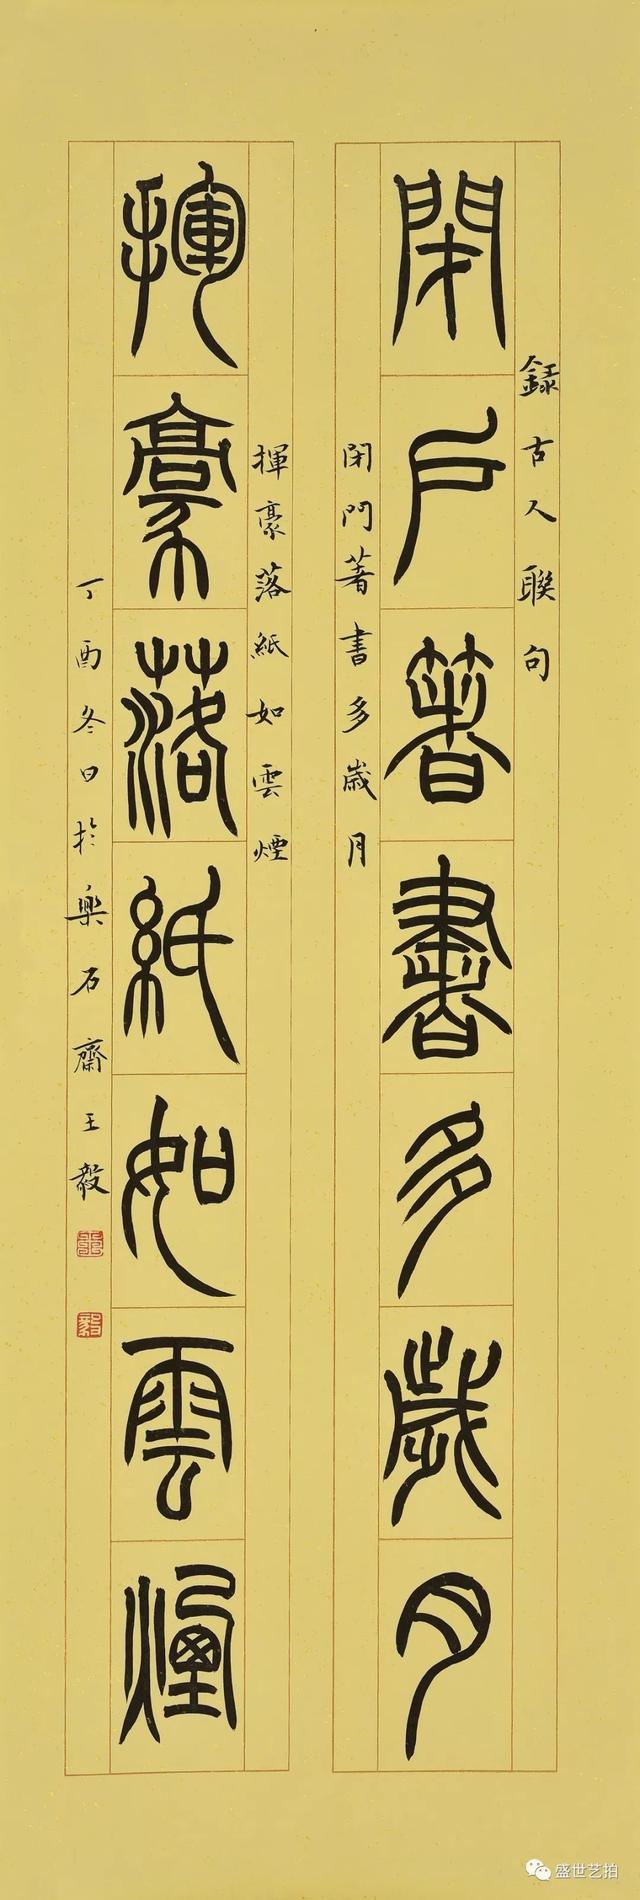 錄古人聯句
閉戶著書多歲月
閉門著書多歲月
揮豪落紙如雲煙
揮豪落紙如雲煙
丁酉冬日於樂石齋王毅
盛世艺拍